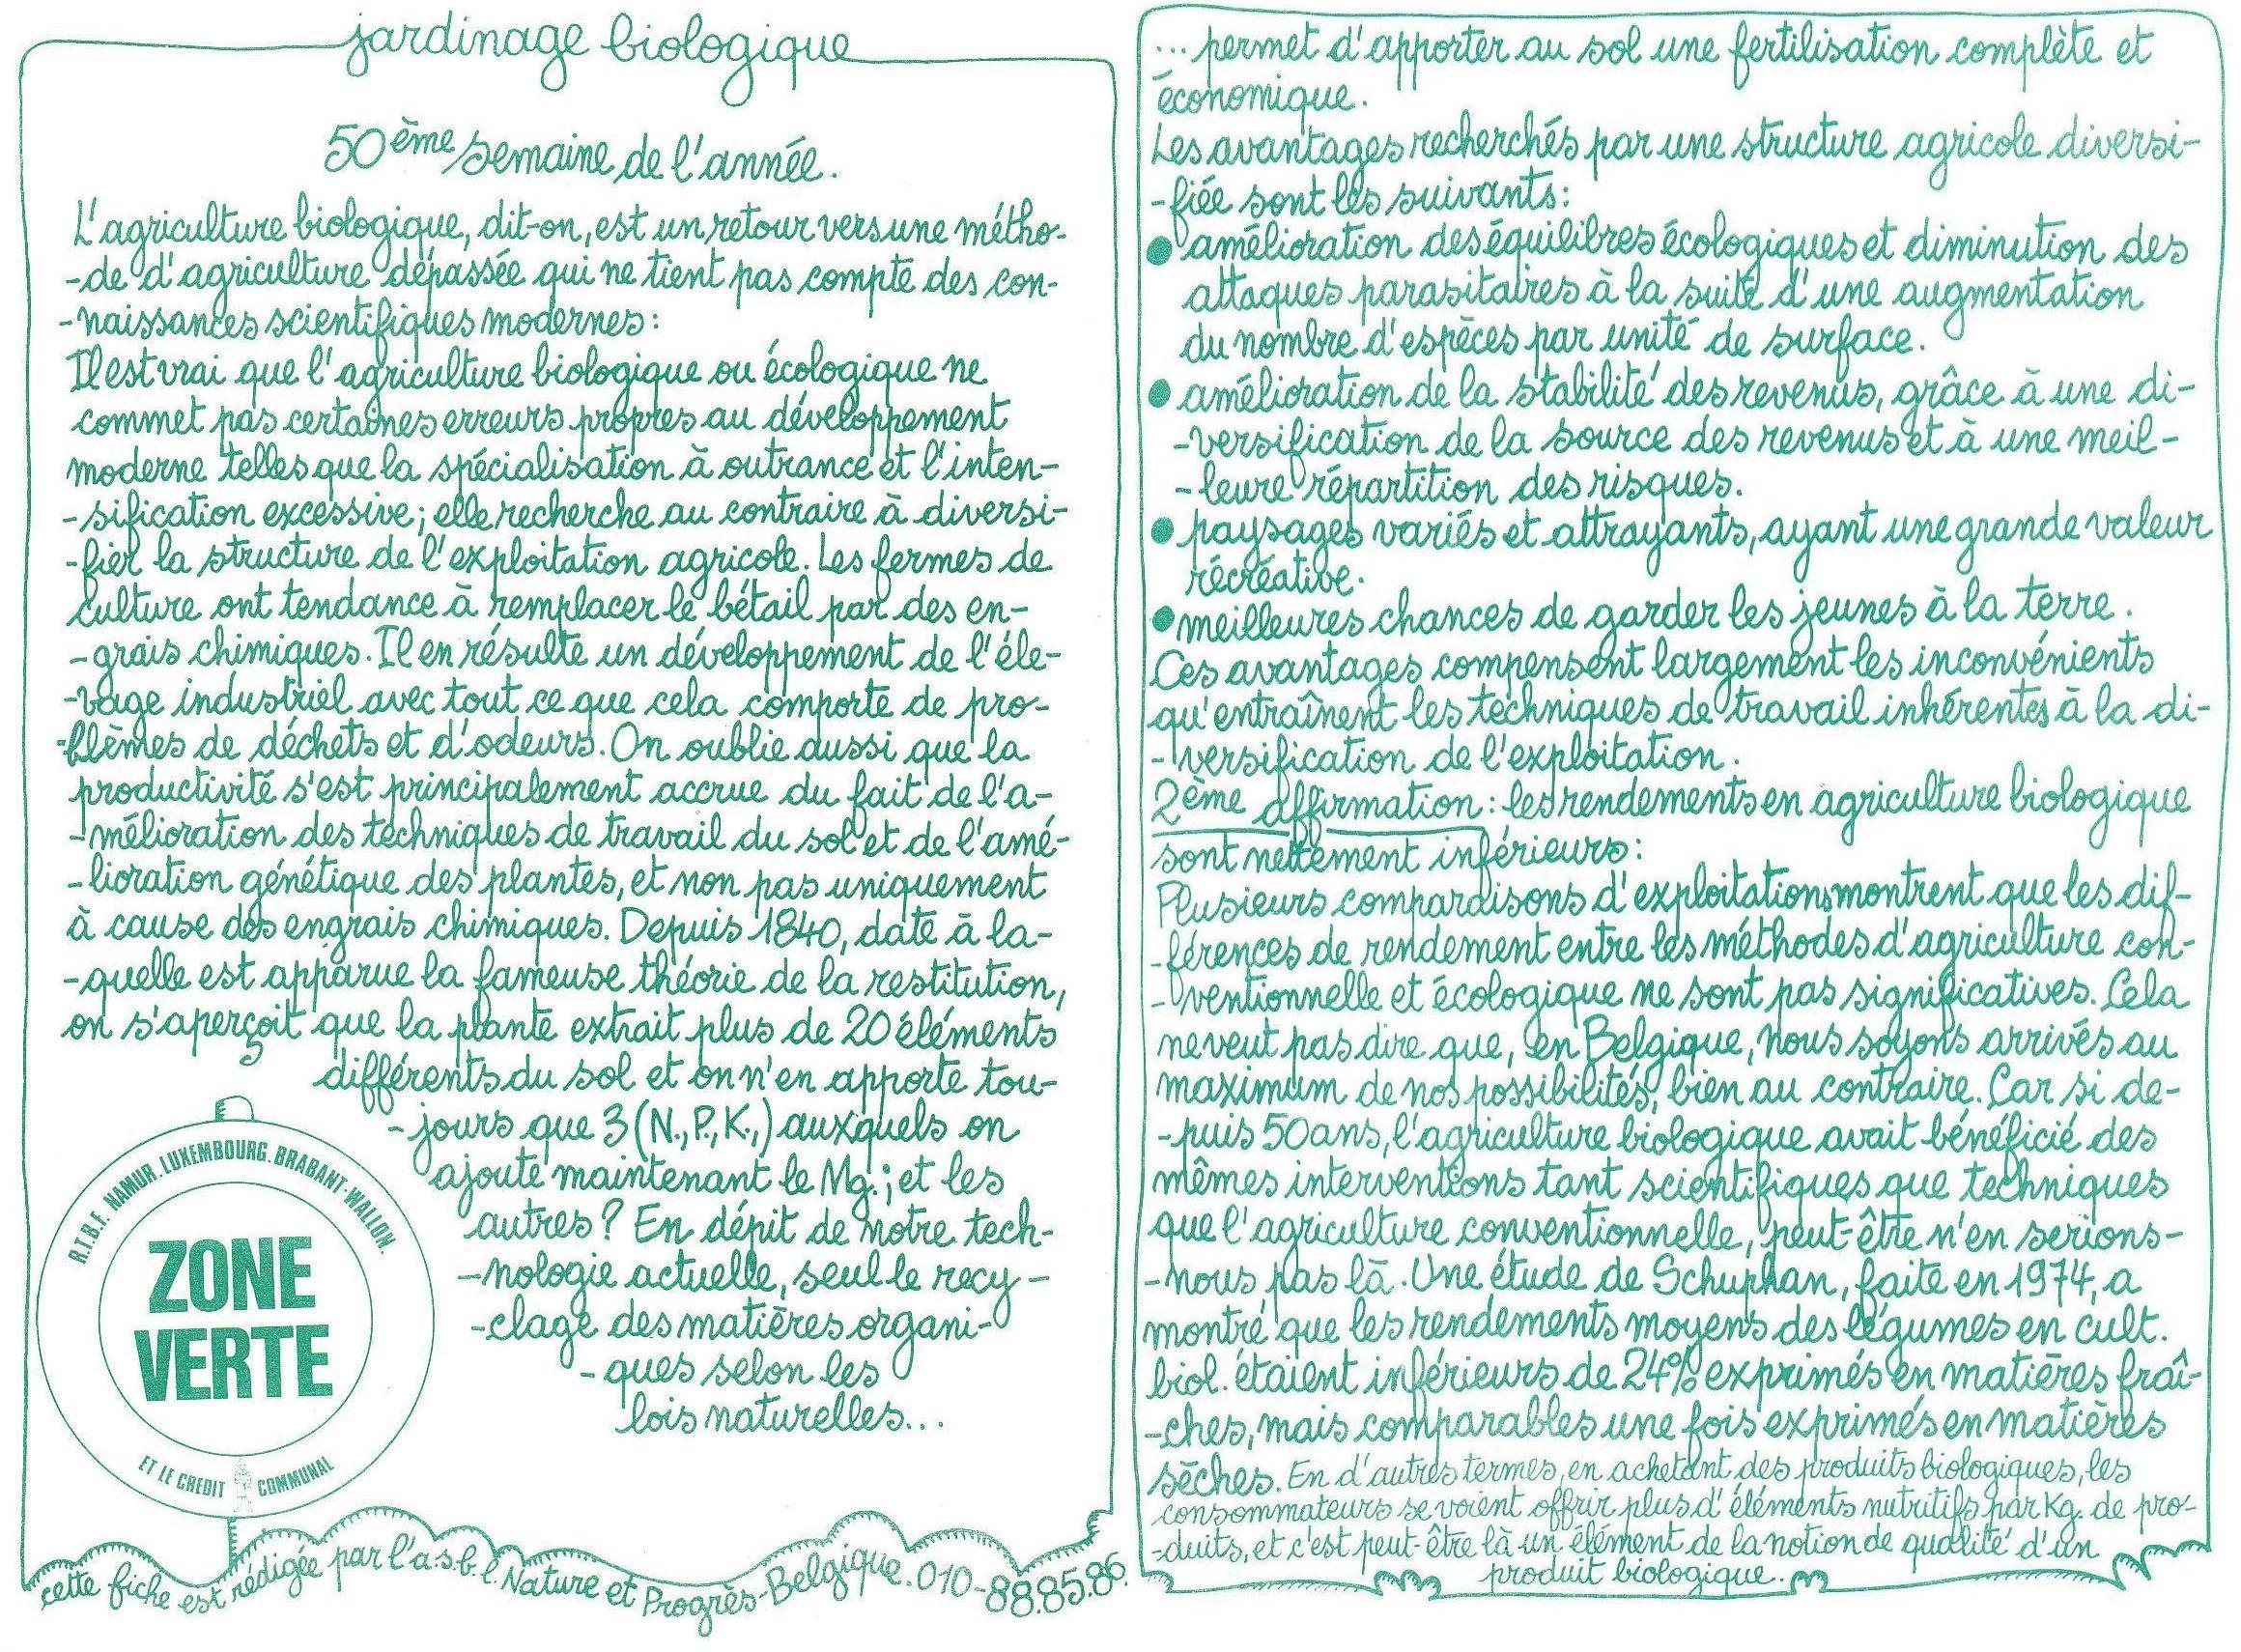 jardinage biologique
50ème semaine de l'année.
L'agriculture biologique, dit-on, est un retour vers une métho-
-de d'agriculture dépassée qui ne tient pas compte des con-
-naissances scientifiques modernes:
Il est vrai que l'agriculture biologique ou écologique ne
commet pas certaines erreurs propres au développement
moderne telles que la spécialisation à outrance et l'inten-
-sification excessive; elle recherche au contraire à diversi-
-fier la structure de l'exploitation agricole. Les fermes de
culture ont tendance à remplacer le bétail par des en-
-grais chimiques. Il en résulte un développement de l'éle-
-vage industriel avec tout ce que cela comporte de pro-
-blèmes de déchets et d'odeurs. On oublie aussi que la
productivité s'est principalement accrue du fait de l'a-
-mélioration des techniques de travail du sol et de l'amé-
-lioration génétique des plantes, et non pas uniquement
à cause des engrais chimiques. Depuis 1840, date à la-
-quelle est apparue la fameuse théorie de la restitution,
on s'aperçoit que la plante extrait plus de 20 éléments
différents du sol et on n'en apporte tou-
-jours que 3 (N., P., K.,) auxquels on
ajoute maintenant le Mg.; et les
autres? En dépit de notre tech-
-nologie actuelle, seul le recy-
-clage des matières organi-
-ques selon les
lois naturelles...
R.T.B.F. NAMUR. LUXEMBOURG. BRABANT-WALLON.
ZONE
VERTE
ET LE CREDIT COMMUNAL
cette fiche est rédigée par l'a.s.b.l. Nature et Progrès-Belgique. 010-88.85.86.
... permet d'apporter au sol une fertilisation complète et
économique.
Les avantages recherchés par une structure agricole diversi-
-fiée sont les suivants:
● amélioration des équilibres écologiques et diminution des
attaques parasitaires à la suite d'une augmentation
du nombre d'espèces par unité de surface.
● amélioration de la stabilité des revenus, grâce à une di-
-versification de la source des revenus et à une meil-
-leure répartition des risques.
● paysages variés et attrayants, ayant une grande valeur
récréative.
● meilleures chances de garder les jeunes à la terre.
Ces avantages compensent largement les inconvénients
qu'entraînent les techniques de travail inhérentes à la di-
-versification de l'exploitation.
2ème affirmation: les rendements en agriculture biologique
sont nettement inférieurs:
Plusieurs comparaisons d'exploitations montrent que les dif-
-férences de rendement entre les méthodes d'agriculture con-
-ventionnelle et écologique ne sont pas significatives. Cela
ne veut pas dire que, en Belgique, nous soyons arrivés au
maximum de nos possibilités, bien au contraire. Car si de-
-puis 50 ans, l'agriculture biologique avait bénéficié des
mêmes interventions tant scientifiques que techniques
que l'agriculture conventionnelle, peut-être n'en serions-
-nous pas là. Une étude de Schuphan, faite en 1974, a
montré que les rendements moyens des légumes en cult.
biol. étaient inférieurs de 24% exprimés en matières fraî-
-ches, mais comparables une fois exprimés en matières
sèches. En d'autres termes, en achetant des produits biologiques, les
consommateurs se voient offrir plus d'éléments nutritifs par Kg. de pro-
-duits, et c'est peut-être là un élément de la notion de qualité d'un
produit biologique.